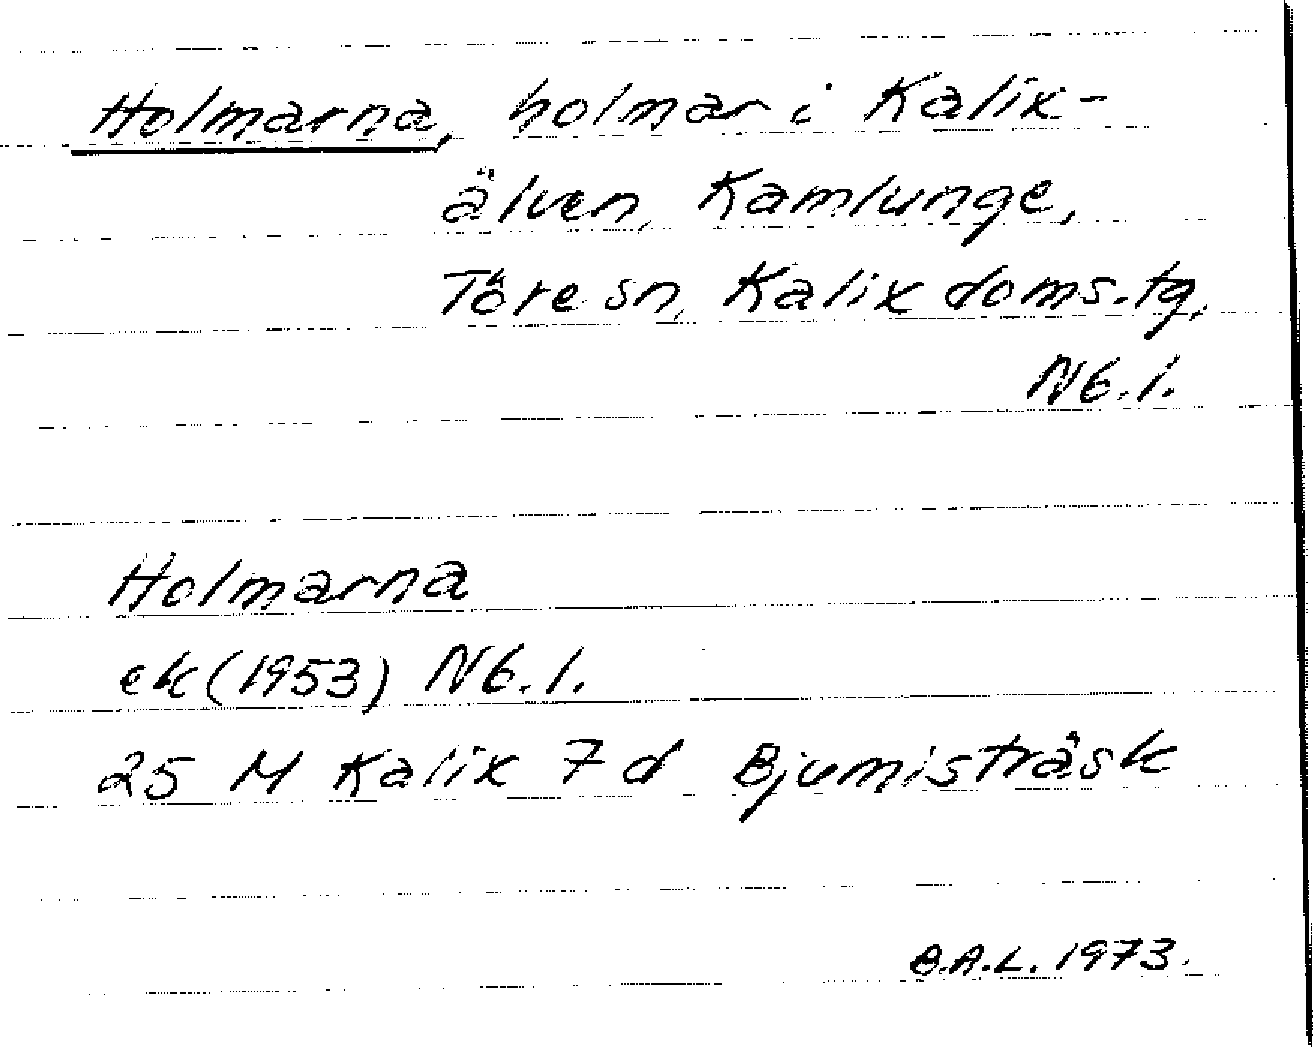 Holmarna, holmar i Kalix-
älven, Kamlunge,
Töre sn, Kalix doms.tg,
Nb.l.
Holmarna
ek (1953) Nb.l.
25 M Kalix 7 d Bjumisträsk
B.A.L. 1973.